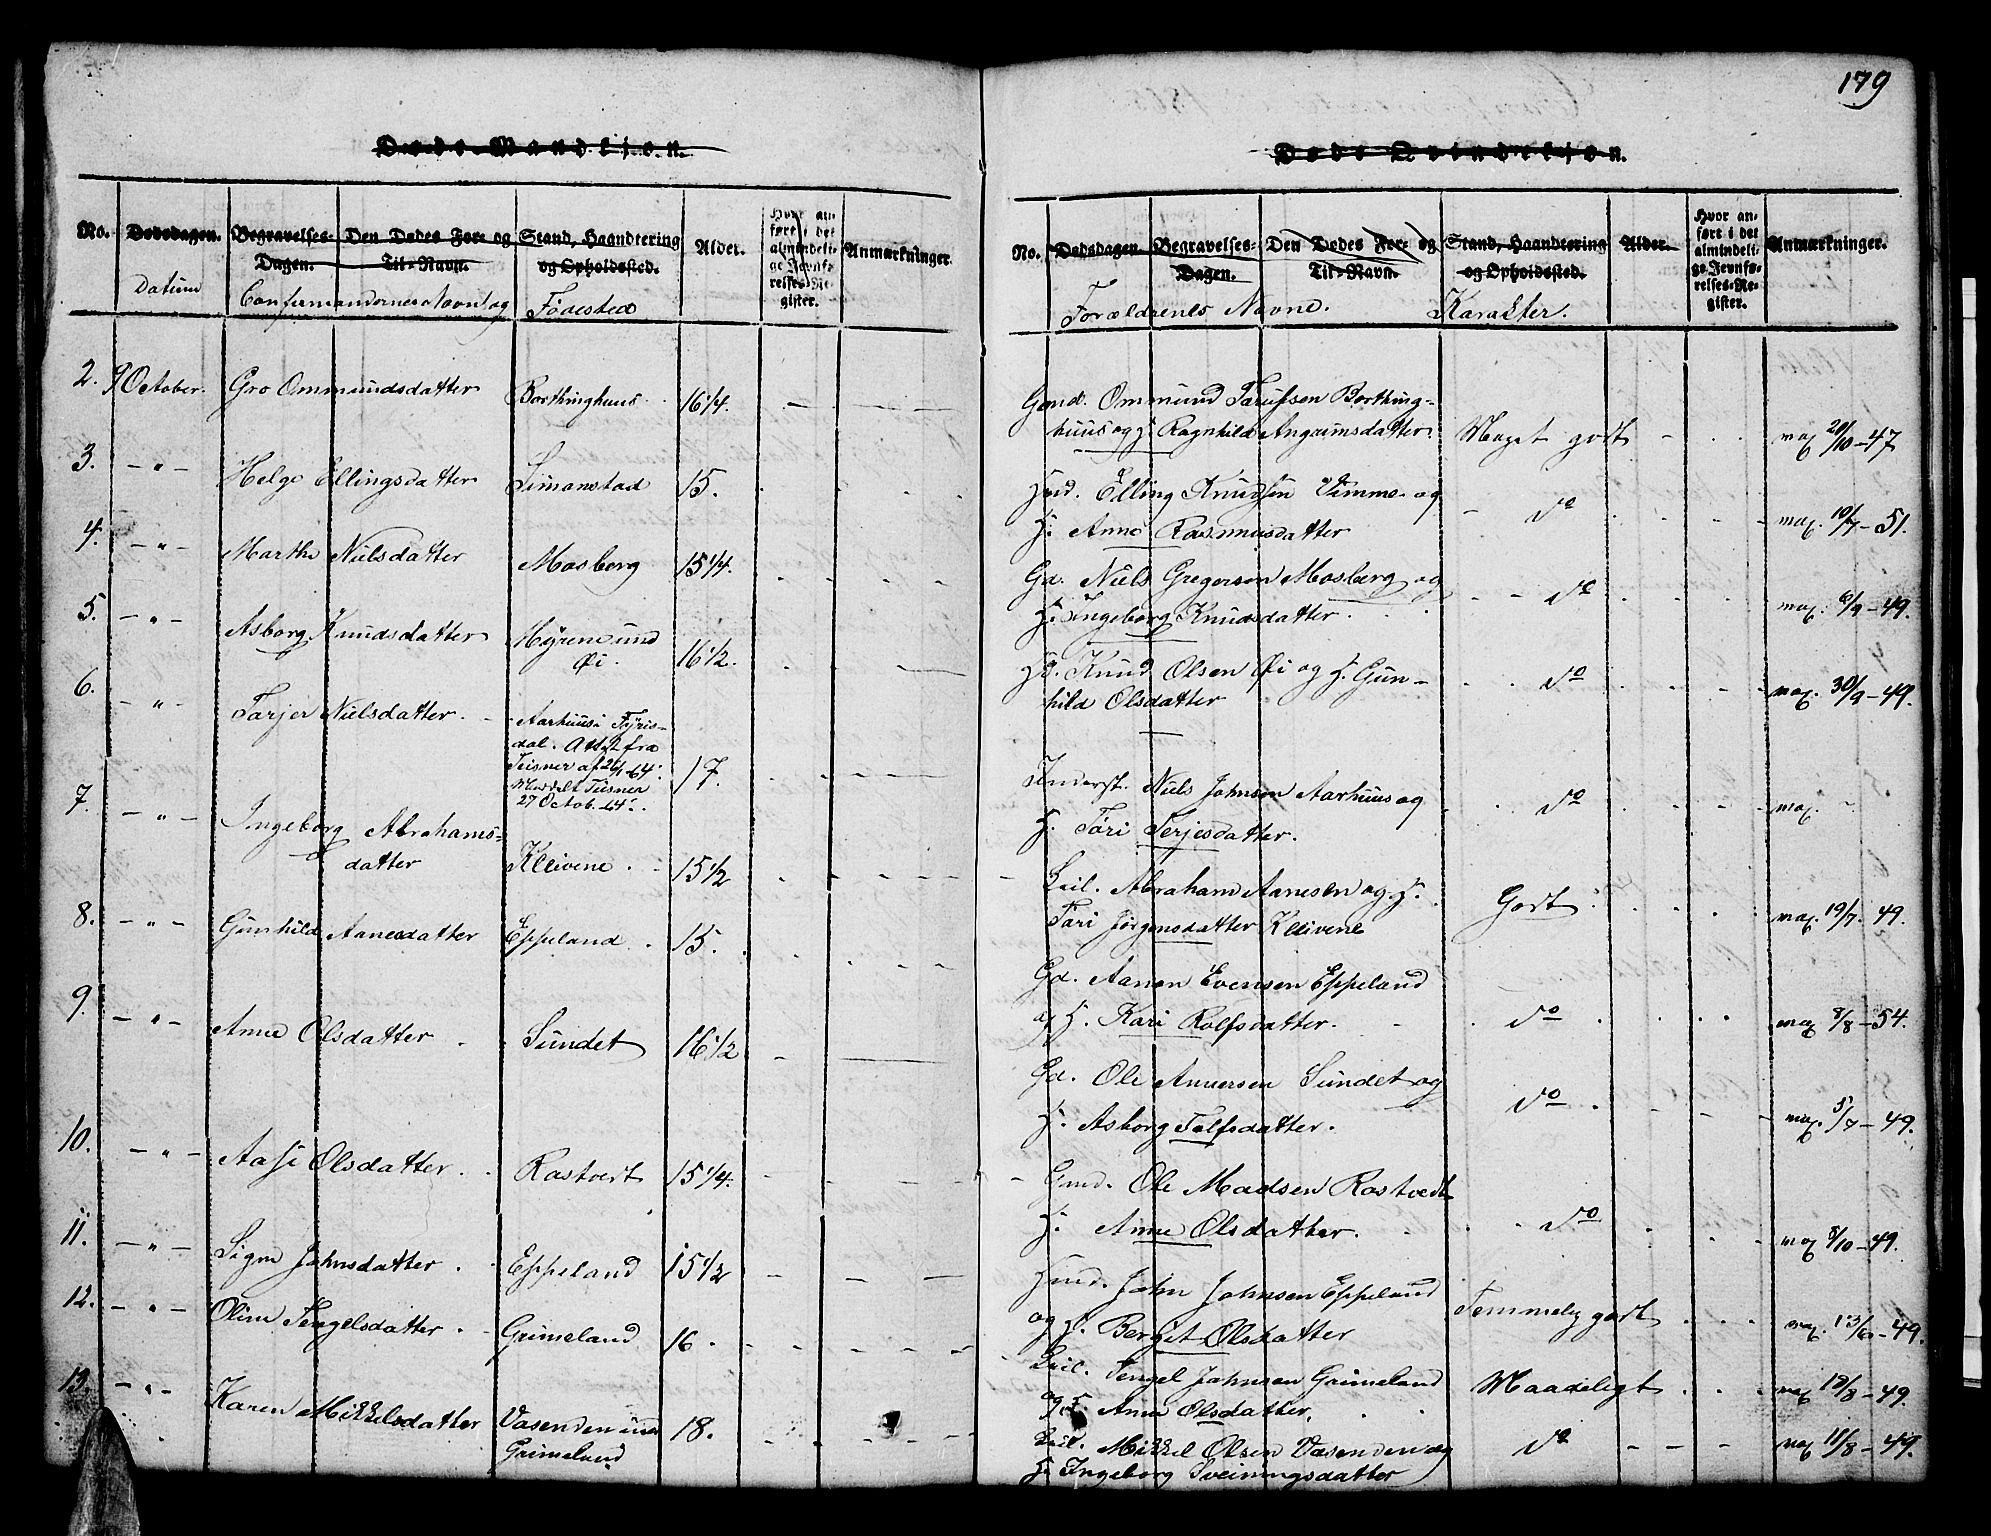 179
Døde Mandkjøn.
No.
Dødsdagen.
Begravelses-
Dagen.
Den Dødes For- og
Til-Navn.
Stand, Haandtering
og Opholdssted.
Alder.
Hvor an-
ført i det
almindeli-
ge Jevnfø-
relses-Re-
gister.
Anmærkninger.
Datum
Confirmandernes Navn og
Fødested
2. 9 October. Gro Ommundsdatter Borthinghuus 16 1/4.
3. - " - Helge Ellingsdatter Simonstad 15.
4. - " - Marthe Nielsdatter Mosberg 15 1/4.
5. - " - Asborg Knudsdatter Myrene und
Øi. 16 1/2.
6. - " - Tarjer Nielsdatter. Aarhuus i Fyris-
dal. Att. fra
Teisner af 26/1-64.
Meddelt Teisner
27 Octob. -64. 17.
7. - " - Ingeborg Abrahams-
datter Kleivene. 15 1/2
8. - " - Gunhild Aanesdatter Eppeland. 15.
9. - " - Anne Olsdatter Sundet 16 1/2
10. - " - Aase Olsdatter. Rastvedt 15 1/4.
11. - " - Signe Johnsdatter. Eppeland 15 1/2
12. - " - Oline Tengelsdatter. Grimeland 16.
13. - " - Karen Mikkelsdatter Vasenden und
Grimeland 18.
Døde Qvindekjøn.
No.
Dødsdagen.
Begravelses-
Dagen.
Den Dødes For- og
Til-Navn.
Stand, Haandtering
og Opholdssted.
Alder.
Hvor an-
ført i det
almindeli-
ge Jevnfø-
relses-Re-
gister.
Anmærkninger.
Forældrenes Navne.
Karakter.
Gmd. Ommund Taraldsen Borthing-
huus og H. Ragnhild Angrimsdatter. Meget godt vax 20/10-47
Hmd. Elling Knudsen Vimme og
H. Anne Rasmusdatter do vax. 10/7-51.
Gd. Niels Gregersen Mosberg og
H. Ingeborg Knudsdatter. do vax. 6/9-49.
Hd. Knud Olsen Øi og H. Gun-
hild Olsdatter do vax. 30/9-49.
Inderst. Niels Johnsen Aarhuus og
H. Tori Terjesdatter. do vax.
Leil. Abraham Aanesen og H.
Tori Jørgensdatter Kleivene Godt vax. 19/7-49.
Gd. Aanen Evensen Eppeland
og H. Kari Rolfsdatter. do vax 8/8-54.
Gd. Ole Andersen Sundet og
H. Asborg Tolfsdatter. do vax. 5/7-49.
Gmd. Ole Madsen Rastvedt
H. Anne Olsdatter. do vax 8/10-49.
Hmd. John Johnsen Eppeland
og H. Berget Olsdatter Temmelig godt vax. 13/6-49.
Leil. Tengel Johnsen Grimeland
og H. Anne Olsdatter. Maadeligt vax 19/8-49.
Leil. Mikkel Olsen Vasenden og
H. Ingeborg Sveinungsdatter do vax 11/8-49.